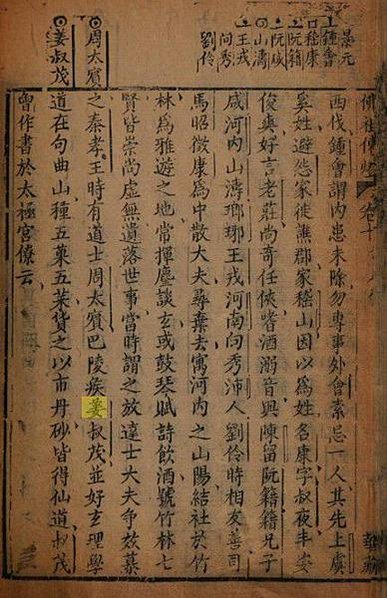 景元
鍾會
嵇康
阮籍
阮咸
山濤
王戎
向秀
劉伶
周太賓
姜叔茂
西伐鍾會謂內患未除勿專事外會素忌一人其先上虞
奚姓避怨家徙譙郡家嵇山因以爲姓名康字叔夜丰姿
俊爽好言老莊尚奇任俠嗜酒溺音與陳留阮籍籍兄子
咸河內山濤瑯琊王戎河南向秀沛人劉伶時相友善司
馬昭徵康爲中散大夫尋棄去寓河內之山陽結社於竹
林爲雅遊之地常揮麈談玄或鼓琴賦詩飲酒號竹林七
賢皆崇尚虛無遺落世事當時謂之放達士大夫爭效慕
之秦孝王時有道士周太賓巴陵侯姜叔茂並好玄理學
道在句曲山種五菓五菜貨之以市丹砂皆得仙道叔茂
曾作書於太極宮僚云